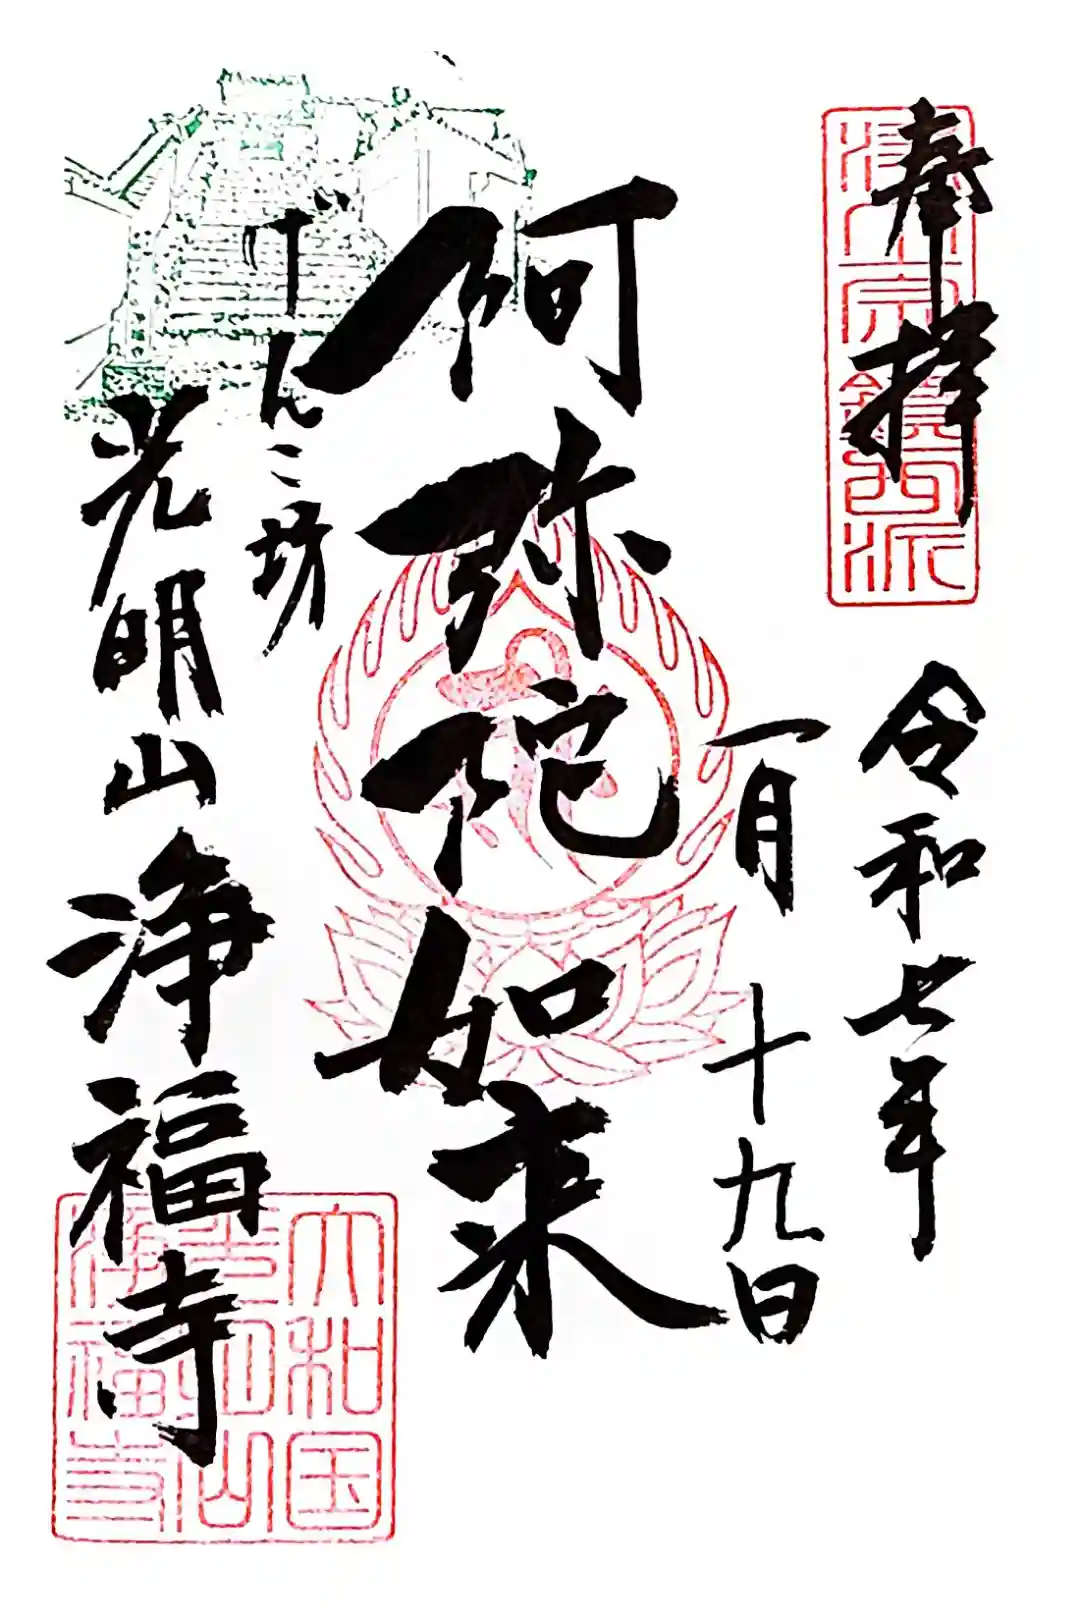 奉拝
浄土宗鎮西派
令和七年
一月十九日
阿弥陀如来
げんこ坊
光明山浄福寺
大和国
光明山
浄福寺